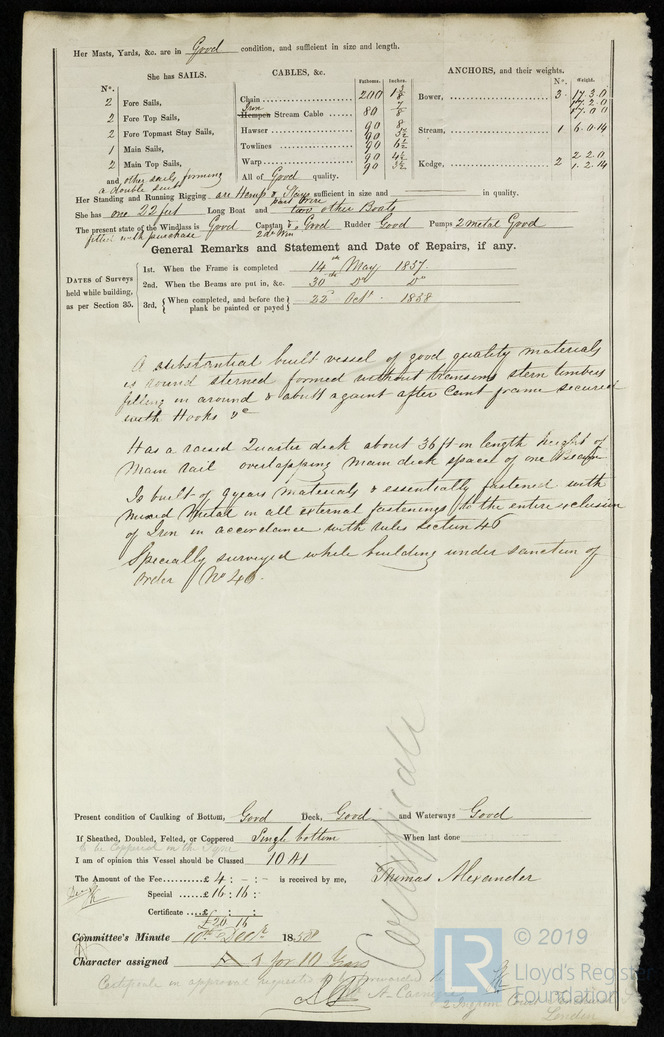 Her Masts, Yards, &c. are in Good condition, and sufficient in size and length.
She has SAILS.
CABLES, &c.
ANCHORS, and their weights.
Fathoms. Inches.
N°. Weight.
N°.
2 Fore Sails,
2 Fore Top Sails,
2 Fore Topmast Stay Sails,
1 Main Sails,
2 Main Top Sails,
and other sails forming
a double suit
Chain 200 1 3/8
Iron
Hempen Stream Cable 80 7/8
Hawser 90 8
90 5½
Towlines 90 6½
Warp 90 4½
90 3½
All of Good quality.
Bower, 3 17.3.0
17.2.0
17.0.0
Stream, 1 6.0.14
Kedge, 2 2.2.0
1.2.14
Her Standing and Running Rigging are Hemp & Stays part Wire sufficient in size and in quality.
She has one 22 feet Long Boat and two other Boats
The present state of the Windlass is Good Capstan & 2 do Win Good Rudder Good Pumps 2 metal Good
fitted with purchase
General Remarks and Statement and Date of Repairs, if any.
DATES of Surveys
held while building,
as per Section 35.
1st. When the Frame is completed 14th May 1857.
2nd. When the Beams are put in, &c. 30th Do Do
3rd. When completed, and before the plank be painted or payed 22d Octr. 1858
A substantial built vessel of good quality materials
is round sterned formed without transoms stern timbers
filling in around & abutt against after Cant frame secured
with Hooks &c
Has a raised Quarter deck about 36 ft in length height of
Main rail overlapping main deck space of one Beam
Is built of 9 years materials & essentially fastened with
mixed Metal in all external fastenings to the entire exclusion
of Iron in accordance with rules section 46
Specially surveyed while building under sanction of
order No 46.
Certificate
Present condition of Caulking of Bottom, Good Deck, Good and Waterways Good
If Sheathed, Doubled, Felted, or Coppered Single bottom When last done
to be Coppered in the Tyne
I am of opinion this Vessel should be Classed 10 A1
The Amount of the Fee £ 4 : - : - is received by me, Thomas Alexander
Special £ 16 : 16 : -
Certificate £ : :
£20 16
Committee's Minute 10th Decr. 1858
Character assigned A 1 for 10 Years
Certificate in approval requested to be forwarded
London
LR
© 2019
Lloyd's Register
Foundation